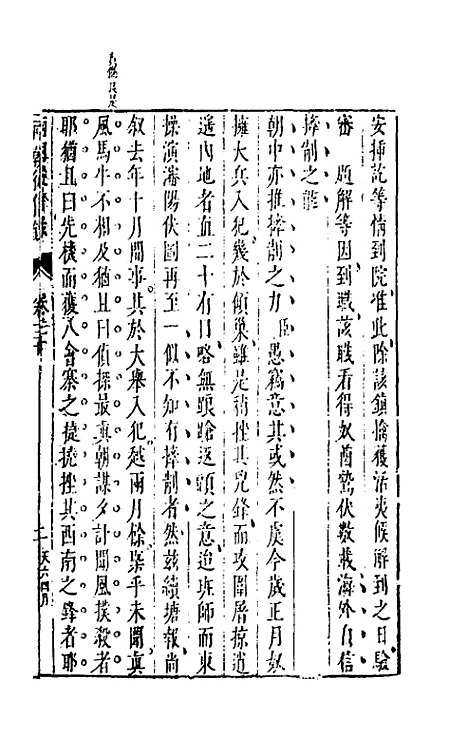 安挿訖等情到院准此除該鎭擒獲活夷候解到之日驗
審 題解等因到職該職看得奴酋蟄伏數載海外自信
捧制之能
朝中亦推捧制之力臣愚竊意其或然不虞今歲正月奴
擁大兵入犯幾於傾巢雖是稍挫其兇鋒而攻圍屠掠逍
遥内地者血二十有日略無踉蹌返顧之意迨班師而東
操演瀋陽伏圖再至一似不知有捧制者然茲續塘報尚
叙去年十月間事其於大舉入犯越兩月餘業乎未聞眞
風馬牛不相及猶且曰偵探最眞朝謀夕計聞風撲殺者
耶猶且曰先機而獲八會寨之捷撓挫其西南之鋒者耶
兩朝從信錄 卷之三十 二 天六四月